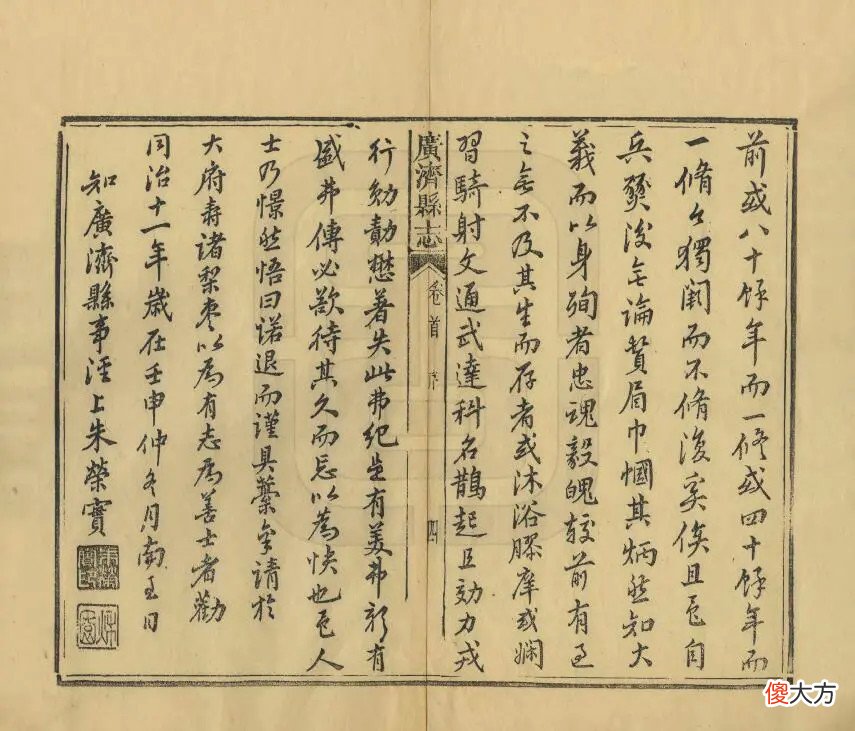 前或八十餘年而一修或四十餘年而
一脩今獨闕而不脩復奚俟且邑自
兵燹後無論賢扃巾幗其炳然知大
義而以身殉者忠魂毅魄較前有過
之無不及其生而存者或沐浴膠庠或嫻
習騎射文通武達科名鵲起且効力戎
廣濟縣志
卷首
序
四
行勛勣懋著失此弗紀豈有美弗彰有
盛弗傳必欲待其久而忘以為快也邑人
士乃憬然悟曰諾退而謹具稾余請於
大府壽諸梨棗以為有志為善士者勸
同治十一年歲在壬申仲冬月南至日
知廣濟縣事涇上朱榮實
傻大方